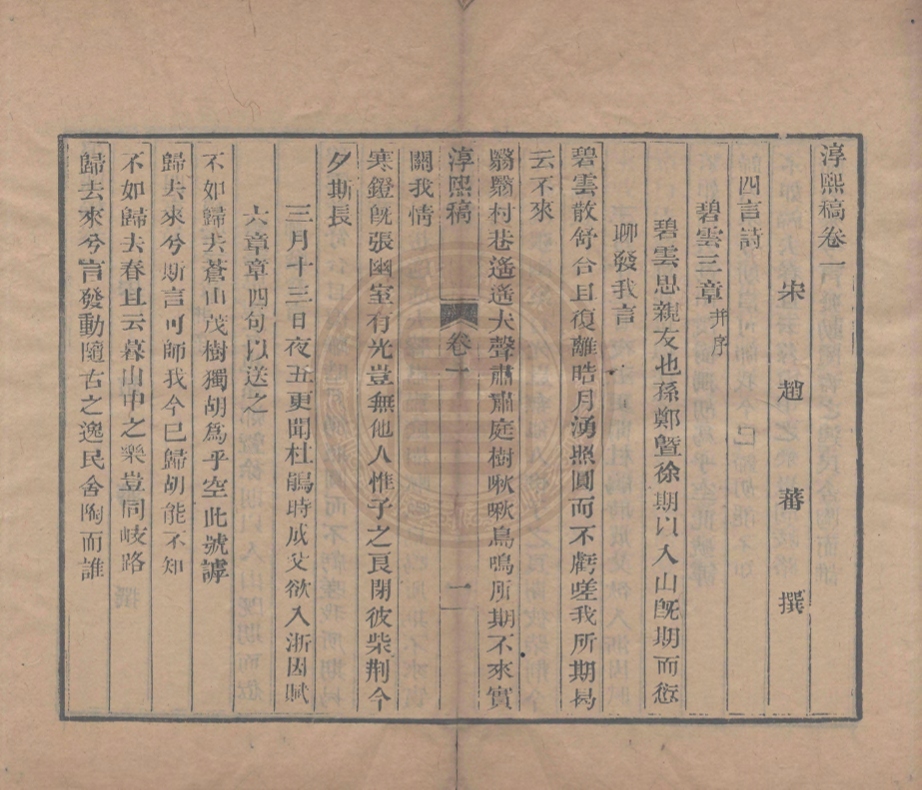 淳熙稿卷一
宋 趙 蕃 撰
四言詩
碧雲三章并序
碧雲思親友也孫鄭曁徐期以入山旣期而愆
聊發我言
碧雲散舒合且復離晧月湧照圓而不虧嗟我所期曷
云不來
翳翳村巷遙遙犬聲肅肅庭樹啾啾鳥鳴所期不來實
淳熙稿 卷一 一
關我情
寒鐙旣張幽室有光豈無他人惟子之良閉彼柴荆今
夕斯長
三月十三日夜五更聞杜鵑時成父欲入浙因賦
六章章四句以送之
不如歸去蒼山茂樹獨胡爲乎空此號謼
歸去來兮斯言可師我今已歸胡能不知
不如歸去春且云暮山中之樂豈同岐路
歸去來兮言發動隨古之逸民舍陶而誰